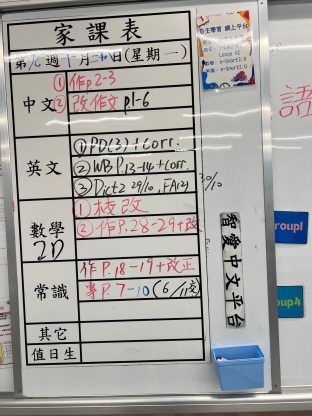 家課表
第九週十月二十日(星期一)
中文
①作p2-3
②改作文p1-6
英文
①PD(3)+Corr.
②WB P.13-14+Corr.
③Dict2 29/10, FA(2) 30/10
數學
2D
①核改
②作P.28-29+改
常識
作P.18-19+改正
專P.7-10(6/11交)
其它
值日生
自主學習 網上平台
智愛中文平台
語
Group1
oup4